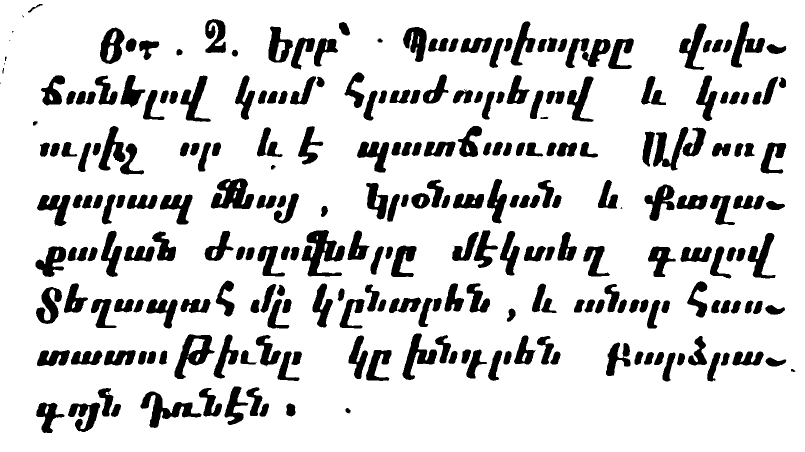 Յօդ. 2. Երբ՝ Պատրիարքը վախ֊
ճանելով կամ հրաժարելով և կամ
ուրիշ որ և է պատճառաւ Աթոռը
պարապ մնայ, կրօնական և Քաղա֊
քական Ժողովները մէկտեղ գալով
Տեղապահ մը կ՚ընտրեն, և անոր հաս֊
տատութիւնը կը խնդրեն Բարձրա֊
գոյն Դռնէն։